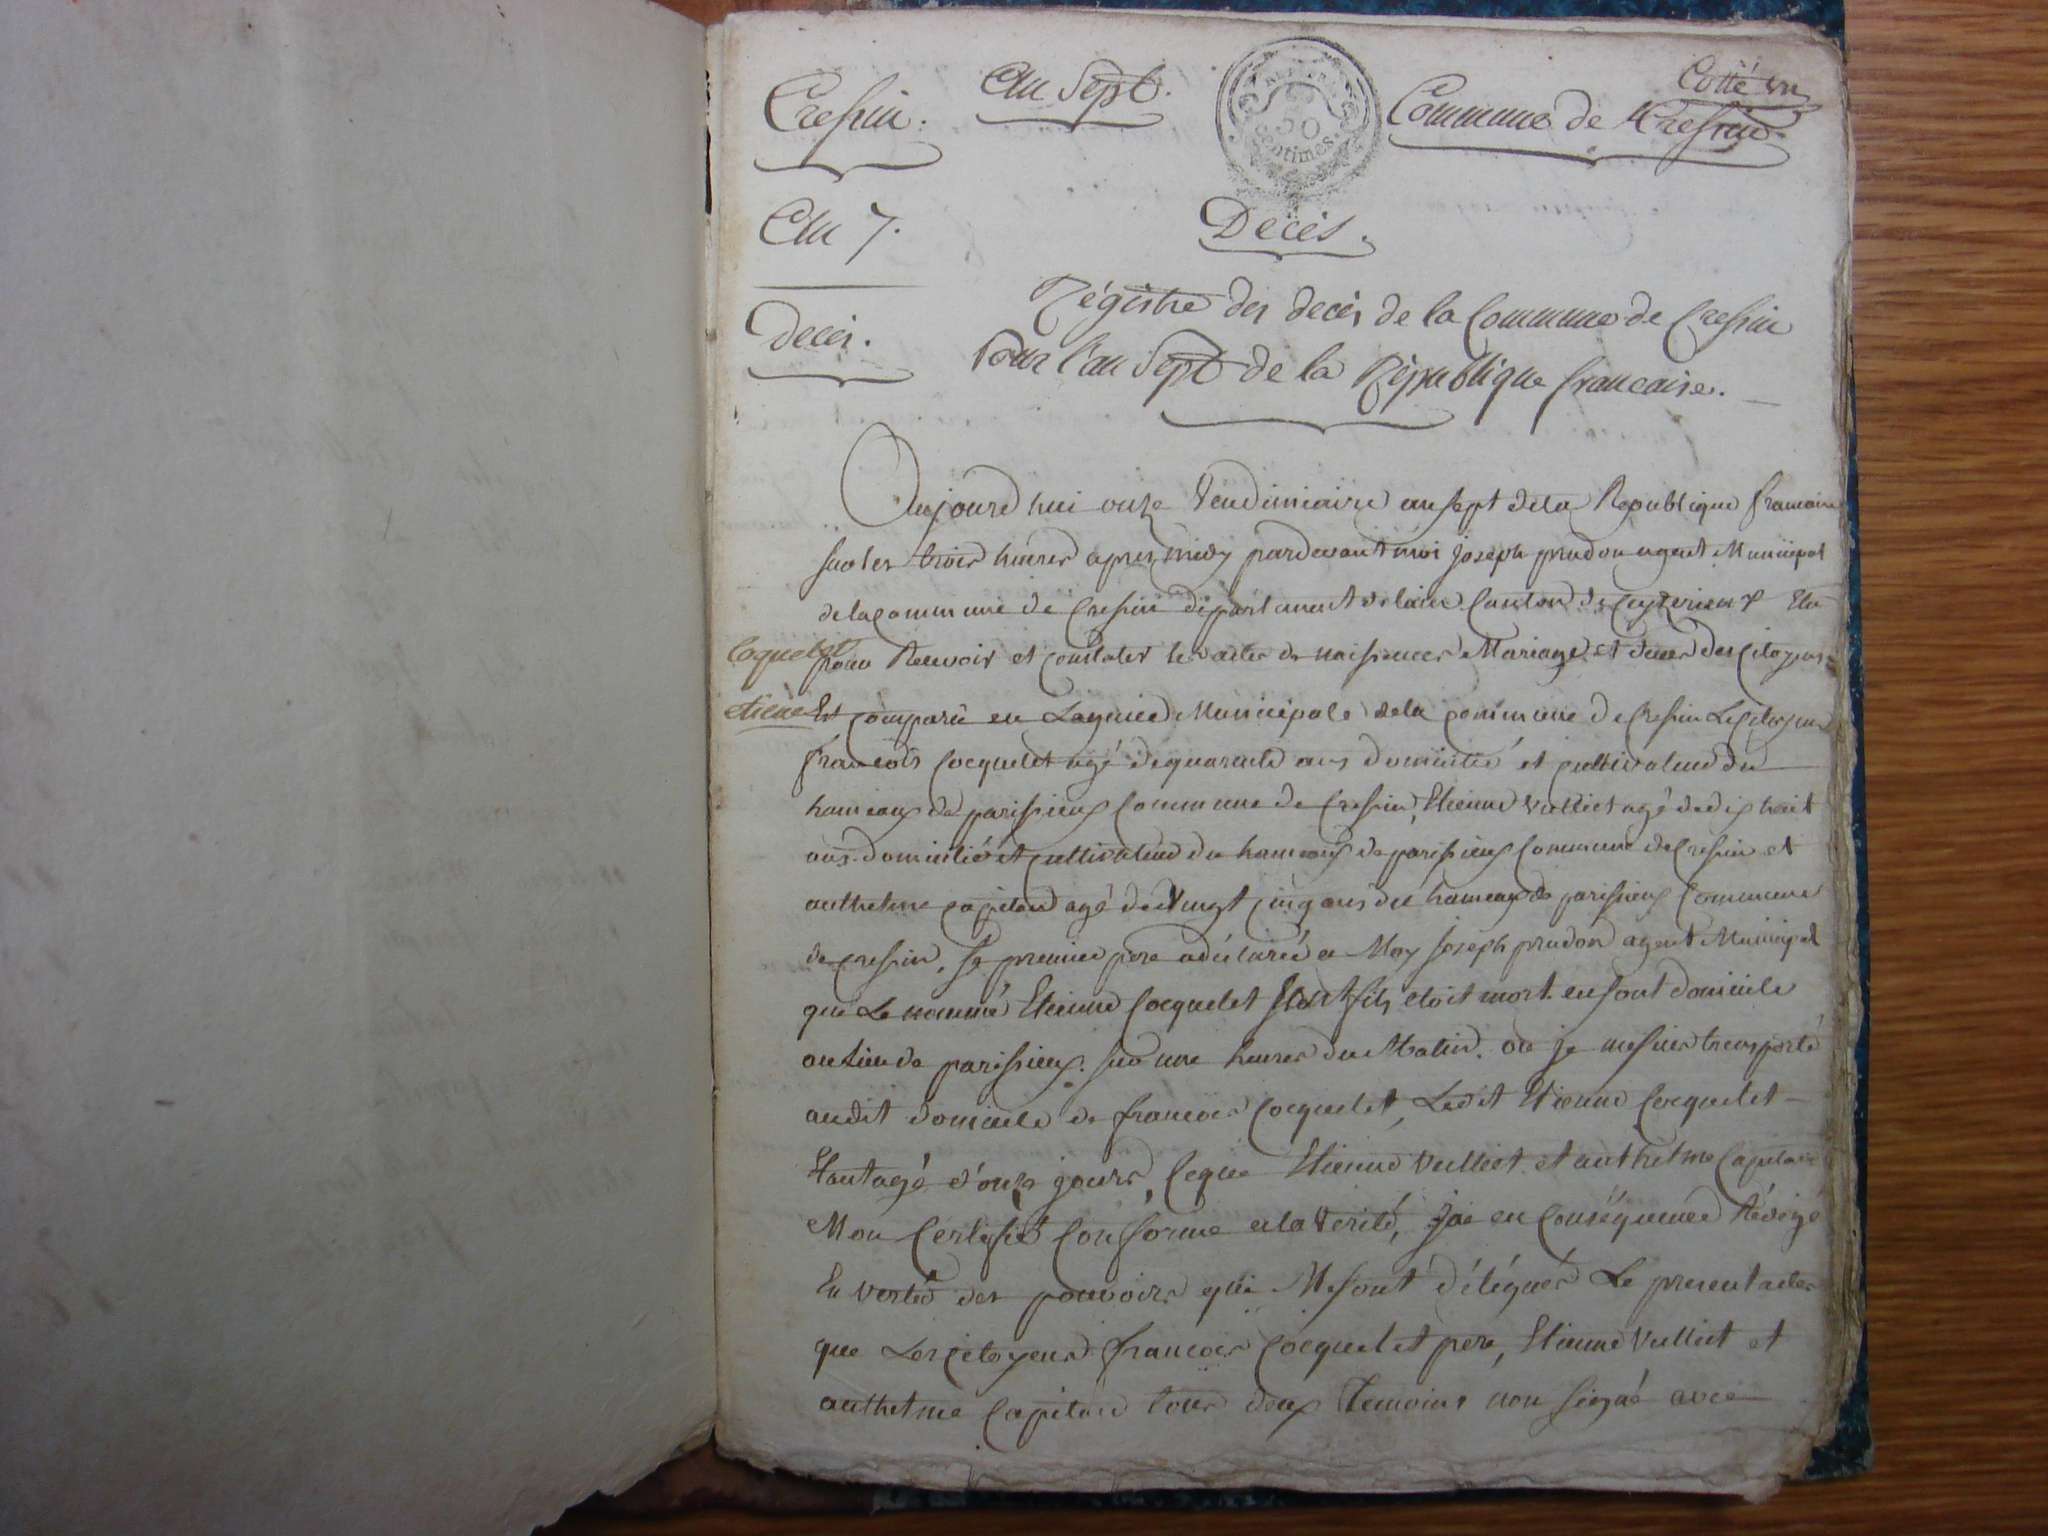 Cotté un
Cressin.
An Sept.
REP. FRA.
50
Centimes
Commune de Cressin.
An 7.
Décès.
Décès.
Régistre des décès de la Commune de Cressin
Pour l'an Sept de la République francaise.
Aujourd hui onze Vendimiaire an sept de la Republique francaise
sur les trois heures apres midy pardevant moi joseph prudon agent Municipal
de la commune de Cressin départament de lain Canton de Ceyzerieux Elu
pour Recevoir et constater les actes de naissances Mariage et deces des Citoyens
Coquelet
etiene
Est comparu en Lagence Municipale de la commune de Cressin Le Citoyen
francois Cocquelet agé de quarente ans domicilié et cultivateur du
hameaux de parissieux Commune de Cressin, Etienne Vulliet agé de dix huit
ans domicilié et cultivateur du hameaux de parissieux Commune de Cressin et
anthelme Capitan agé de Vingt cinq ans du hameaux de parissieux Commune
de Cressin, le premier pere a déclaré a Moy joseph prudon agent Municipal
que Le nommé Etienne Cocquelet son fils etoit mort en sont domicile
au Lieu de parissieux. sur une heures du Matin. ou je me suis transporté
au dit domicile de francois Cocquelet, Ledit Etienne Cocquelet
Etant agé d'onze jours, Ce que Etienne Vulliet et anthelme Capitan
Mon Certifié Conforme a la Verité, jai en Conséquence Rédigé
En Vertu des pouvoirs qui Me sont délégués Le present acte
que Les citoyens francois Cocquelet pere, Etienne Vulliet et
anthelme Capitan tous deux Temoins non signé avec